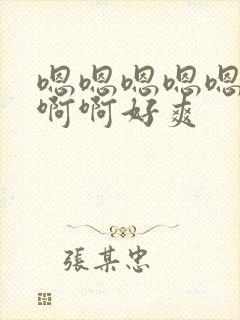 嗯嗯嗯嗯嗯
啊啊好爽
張某忠